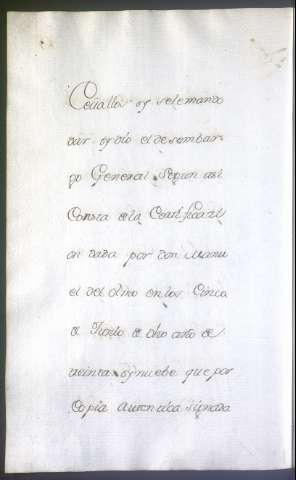 Ceuallos oy se le mando
dar oydio el desembar=
go General Segun asi
Consta de la Certificazi
on dada por don Manu
el del Lino en los Cinco
de Junio de dho año de
treinta oynuebe que por
Copia Autentica signada